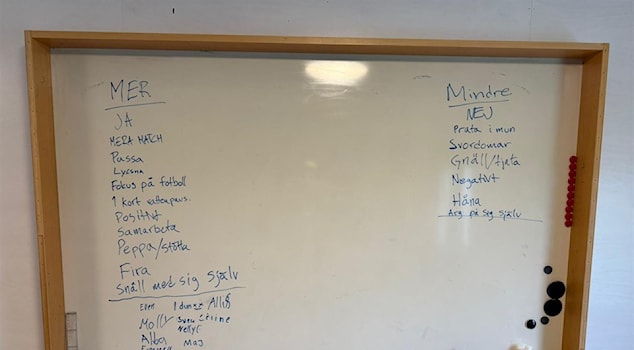 MER
JA
MERA MATCH
Passa
Lyssna
Fokus på fotboll
1 kort vattenpaus.
POSITIVT
Samarbeta
Peppa/stötta
Fira
Snäll med sig själv
Molly
Nelly
Maj
Mindre
NEJ
Prata i mun
Svordomar
Gnäll/tjata
Negativt
Håna
Arg på sig själv